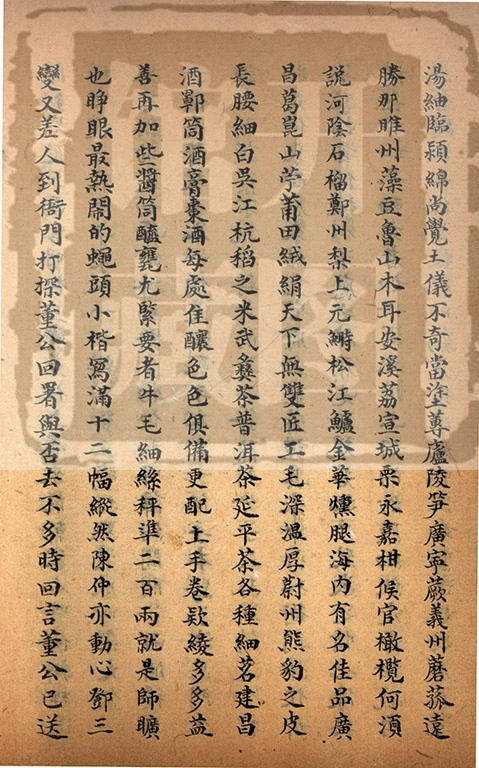 湯紬臨潁綿尚覺土儀不奇當塗蓴廬陵笋廣寧蕨義州蘑菰遠
勝那睢州藻豆魯山木耳安溪荔宣城栗永嘉柑候官橄欖何湏
説河陰石榴鄭州梨上元鰣松江鱸金華燻腿海内有名佳品廣
昌葛崑山苧莆田絨絹天下無雙匠工毛深温厚尉州熊豹之皮
長腰細白吳江杭稻之米武彝茶普洱茶延平茶各種細茗建昌
酒鄿筒酒膏棗酒每處隹釀色色俱備更配土手卷欵綾多多益
善再加些醬筒醯甕尤緊要者牛毛紬絲秤準二百兩就是師曠
也睜眼最熱鬧的蠅頭小楷寫滿十二幅縱然陳仲亦動心鄧三
變又差人到衙門打探董公回署與否去不多時回言董公已送